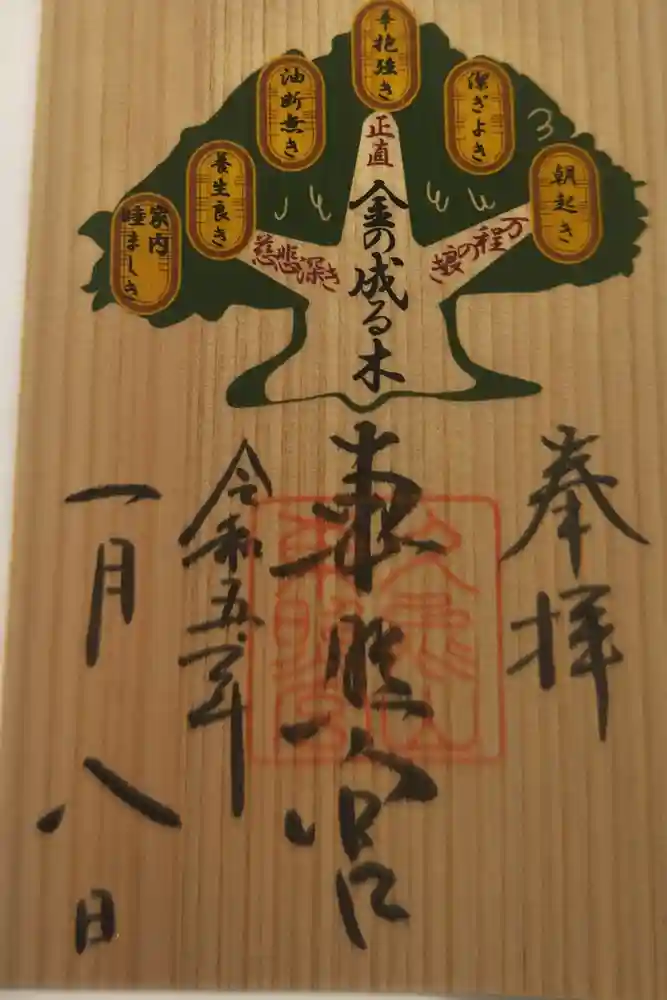 辛抱強き
油断無き
潔ぎよき
養生良き
朝起き
家内
睦ましき
正直
慈悲深き
万程の木
金の成る木
奉拝
東照宮
令和五年
一月八日